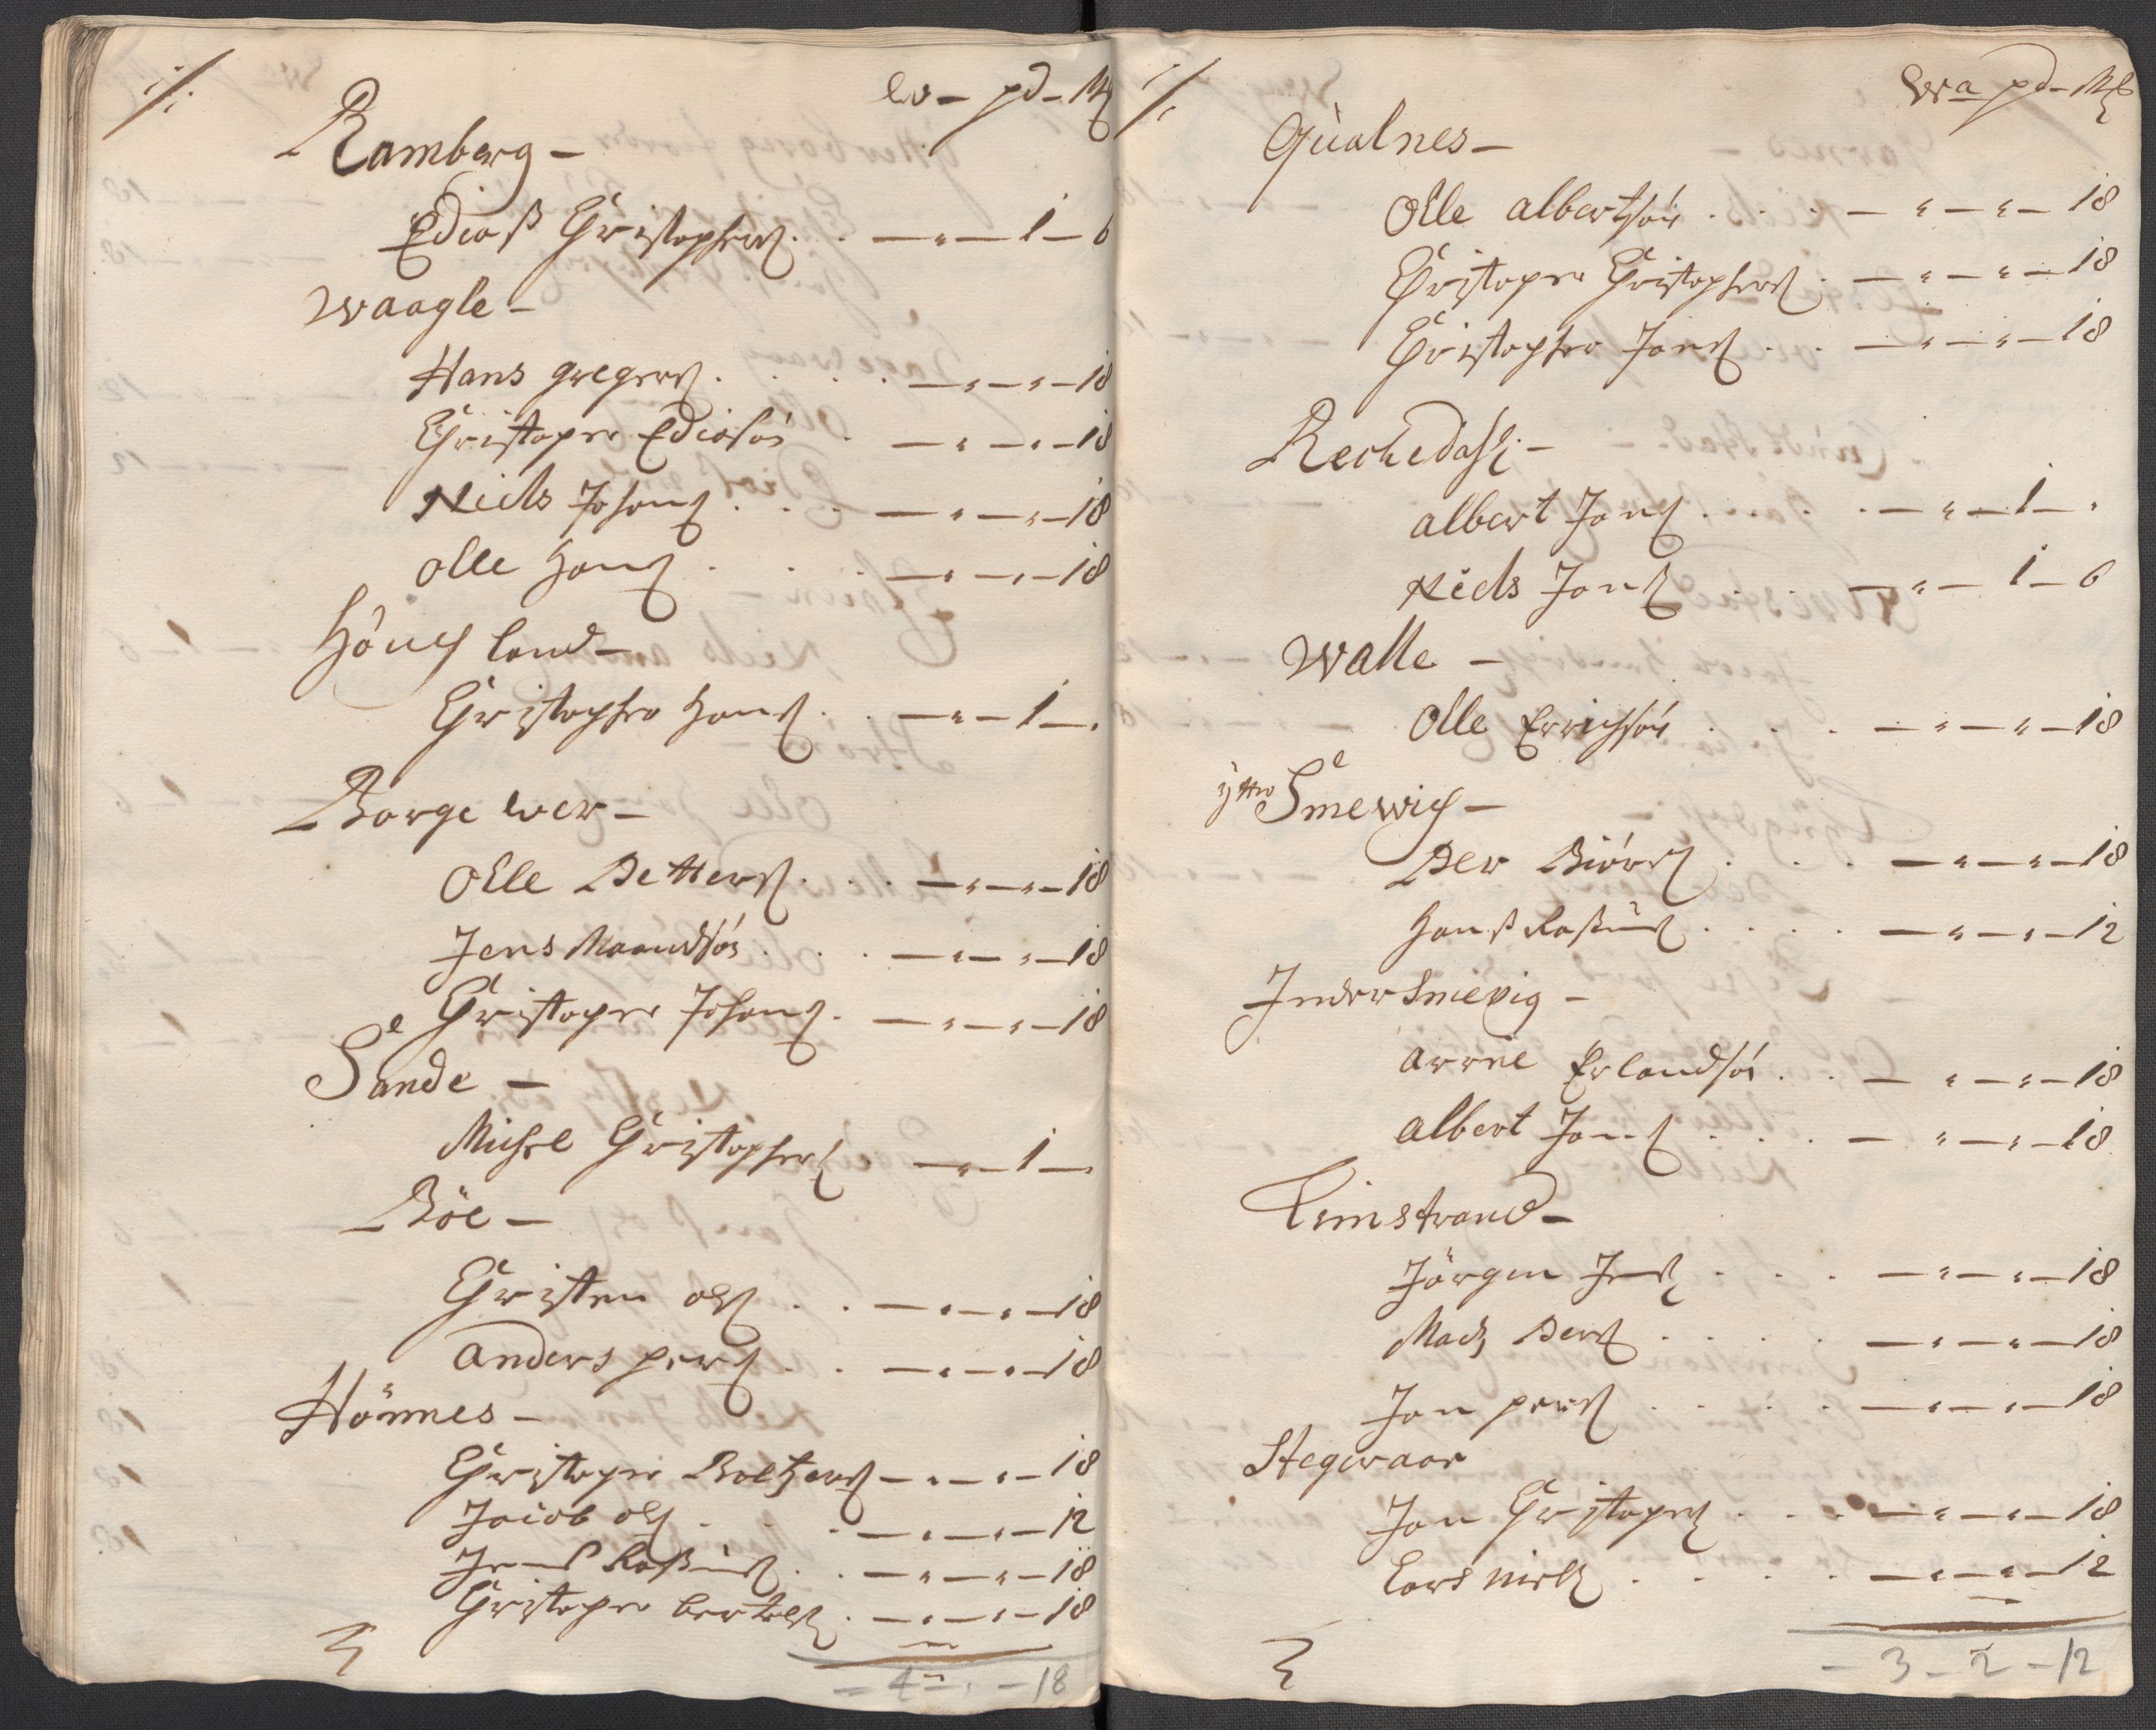 ·/·
W – pd – Mk
Ramberg –
Ediaß Christophers . . — „ — 1 — 6
Waagle –
Hans Gregers . . . — „ — „ — 18
Christoper Ediasøn . — „ — „ — 18
Niels Johans . . . — „ — „ — 18
Olle Hans . . . — „ — „ — 18
Høness land –
Christopher Hans . . — „ — 1 — „
Borge wer –
Olle Petters . . . — „ — „ — 18
Jens Maandsøn . . . — „ — „ — 18
Christoper Johans . — „ — „ — 18
Sande –
Michel Christophers . — „ — 1 — „
Böe –
Christen Ols . . — „ — „ — 18
Anders pers . . — „ — „ — 18
Hönnes –
Christoper Baltzers — „ — „ — 18
Jacob Ols . . . — „ — „ — 12
Jens Raßmus . . — „ — „ — 18
Christoper bertels . — „ — „ — 18
— 4 — „ — 18
·/·
Wa pd – Mk
Qualnes –
Olle Albertsøn . . . — „ — „ — 18
Christoper Christophers . — „ — „ — 18
Christopher Jons . . — „ — „ — 18
Reckedahl –
Albert Jons . . . . — „ — 1 — „
Niels Jons . . . — „ — 1 — 6
Walle –
Olle Erichsøn . . . — „ — „ — 18
ytter Smewig –
Per Biørs . . . — „ — „ — 18
Hanß Raßmus . . . . — „ — „ — 12
Inder Smevig –
Arne Erlandsøn . . — „ — „ — 18
Albert Jons . . . — „ — „ — 18
Limstrand –
Jörgen Jens . . . — „ — „ — 18
Mads Pers . . . . — „ — „ — 18
Jon pers . . . . — „ — „ — 18
Stegwaar
Jon Christopers . . . — „ — „ — 18
Lars Niels . . . . — „ — „ — 12
— 3 — 2 — 12